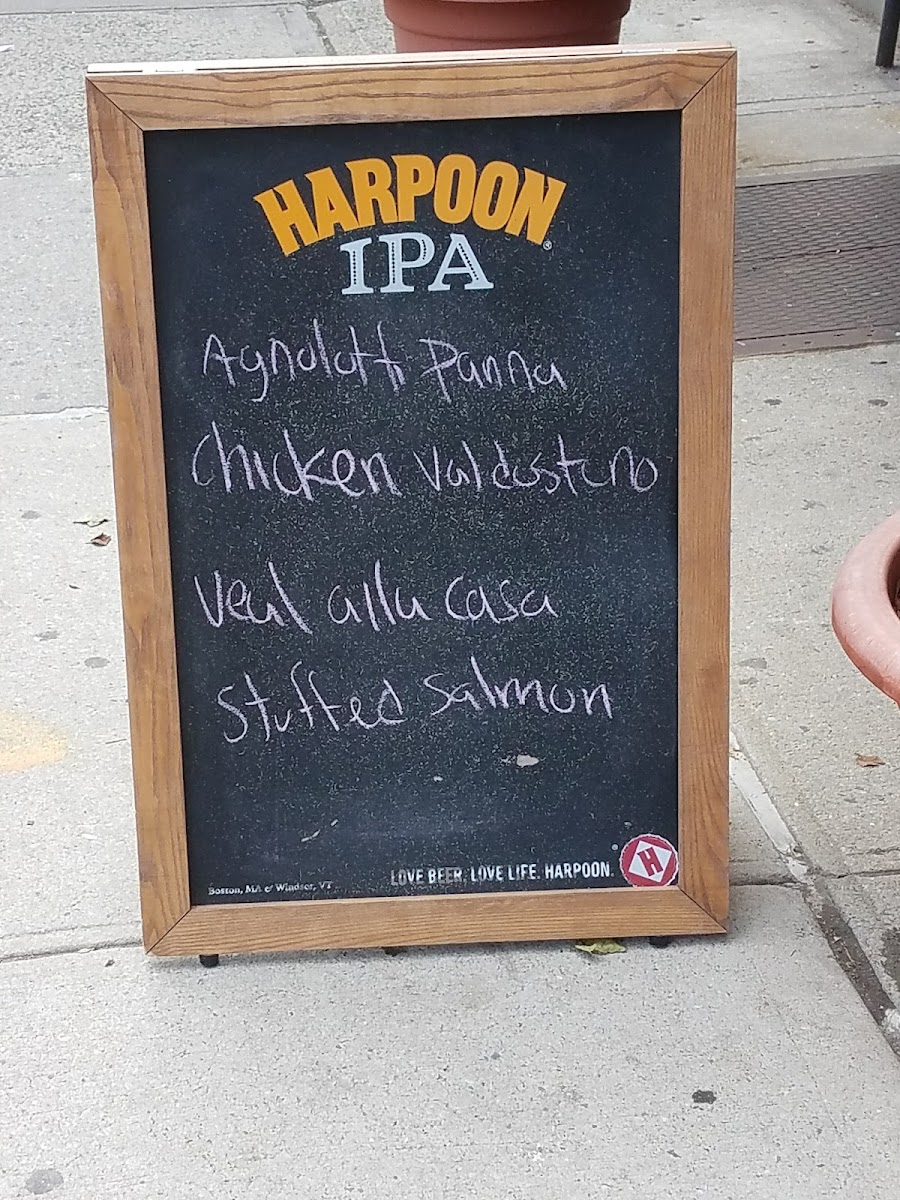 HARPOON
IPA
Agnolotti Panna
Chicken Valdostano
Veal alla casa
Stuffed Salmon
LOVE BEER. LOVE LIFE. HARPOON.
H
Boston, MA & Windsor, VT